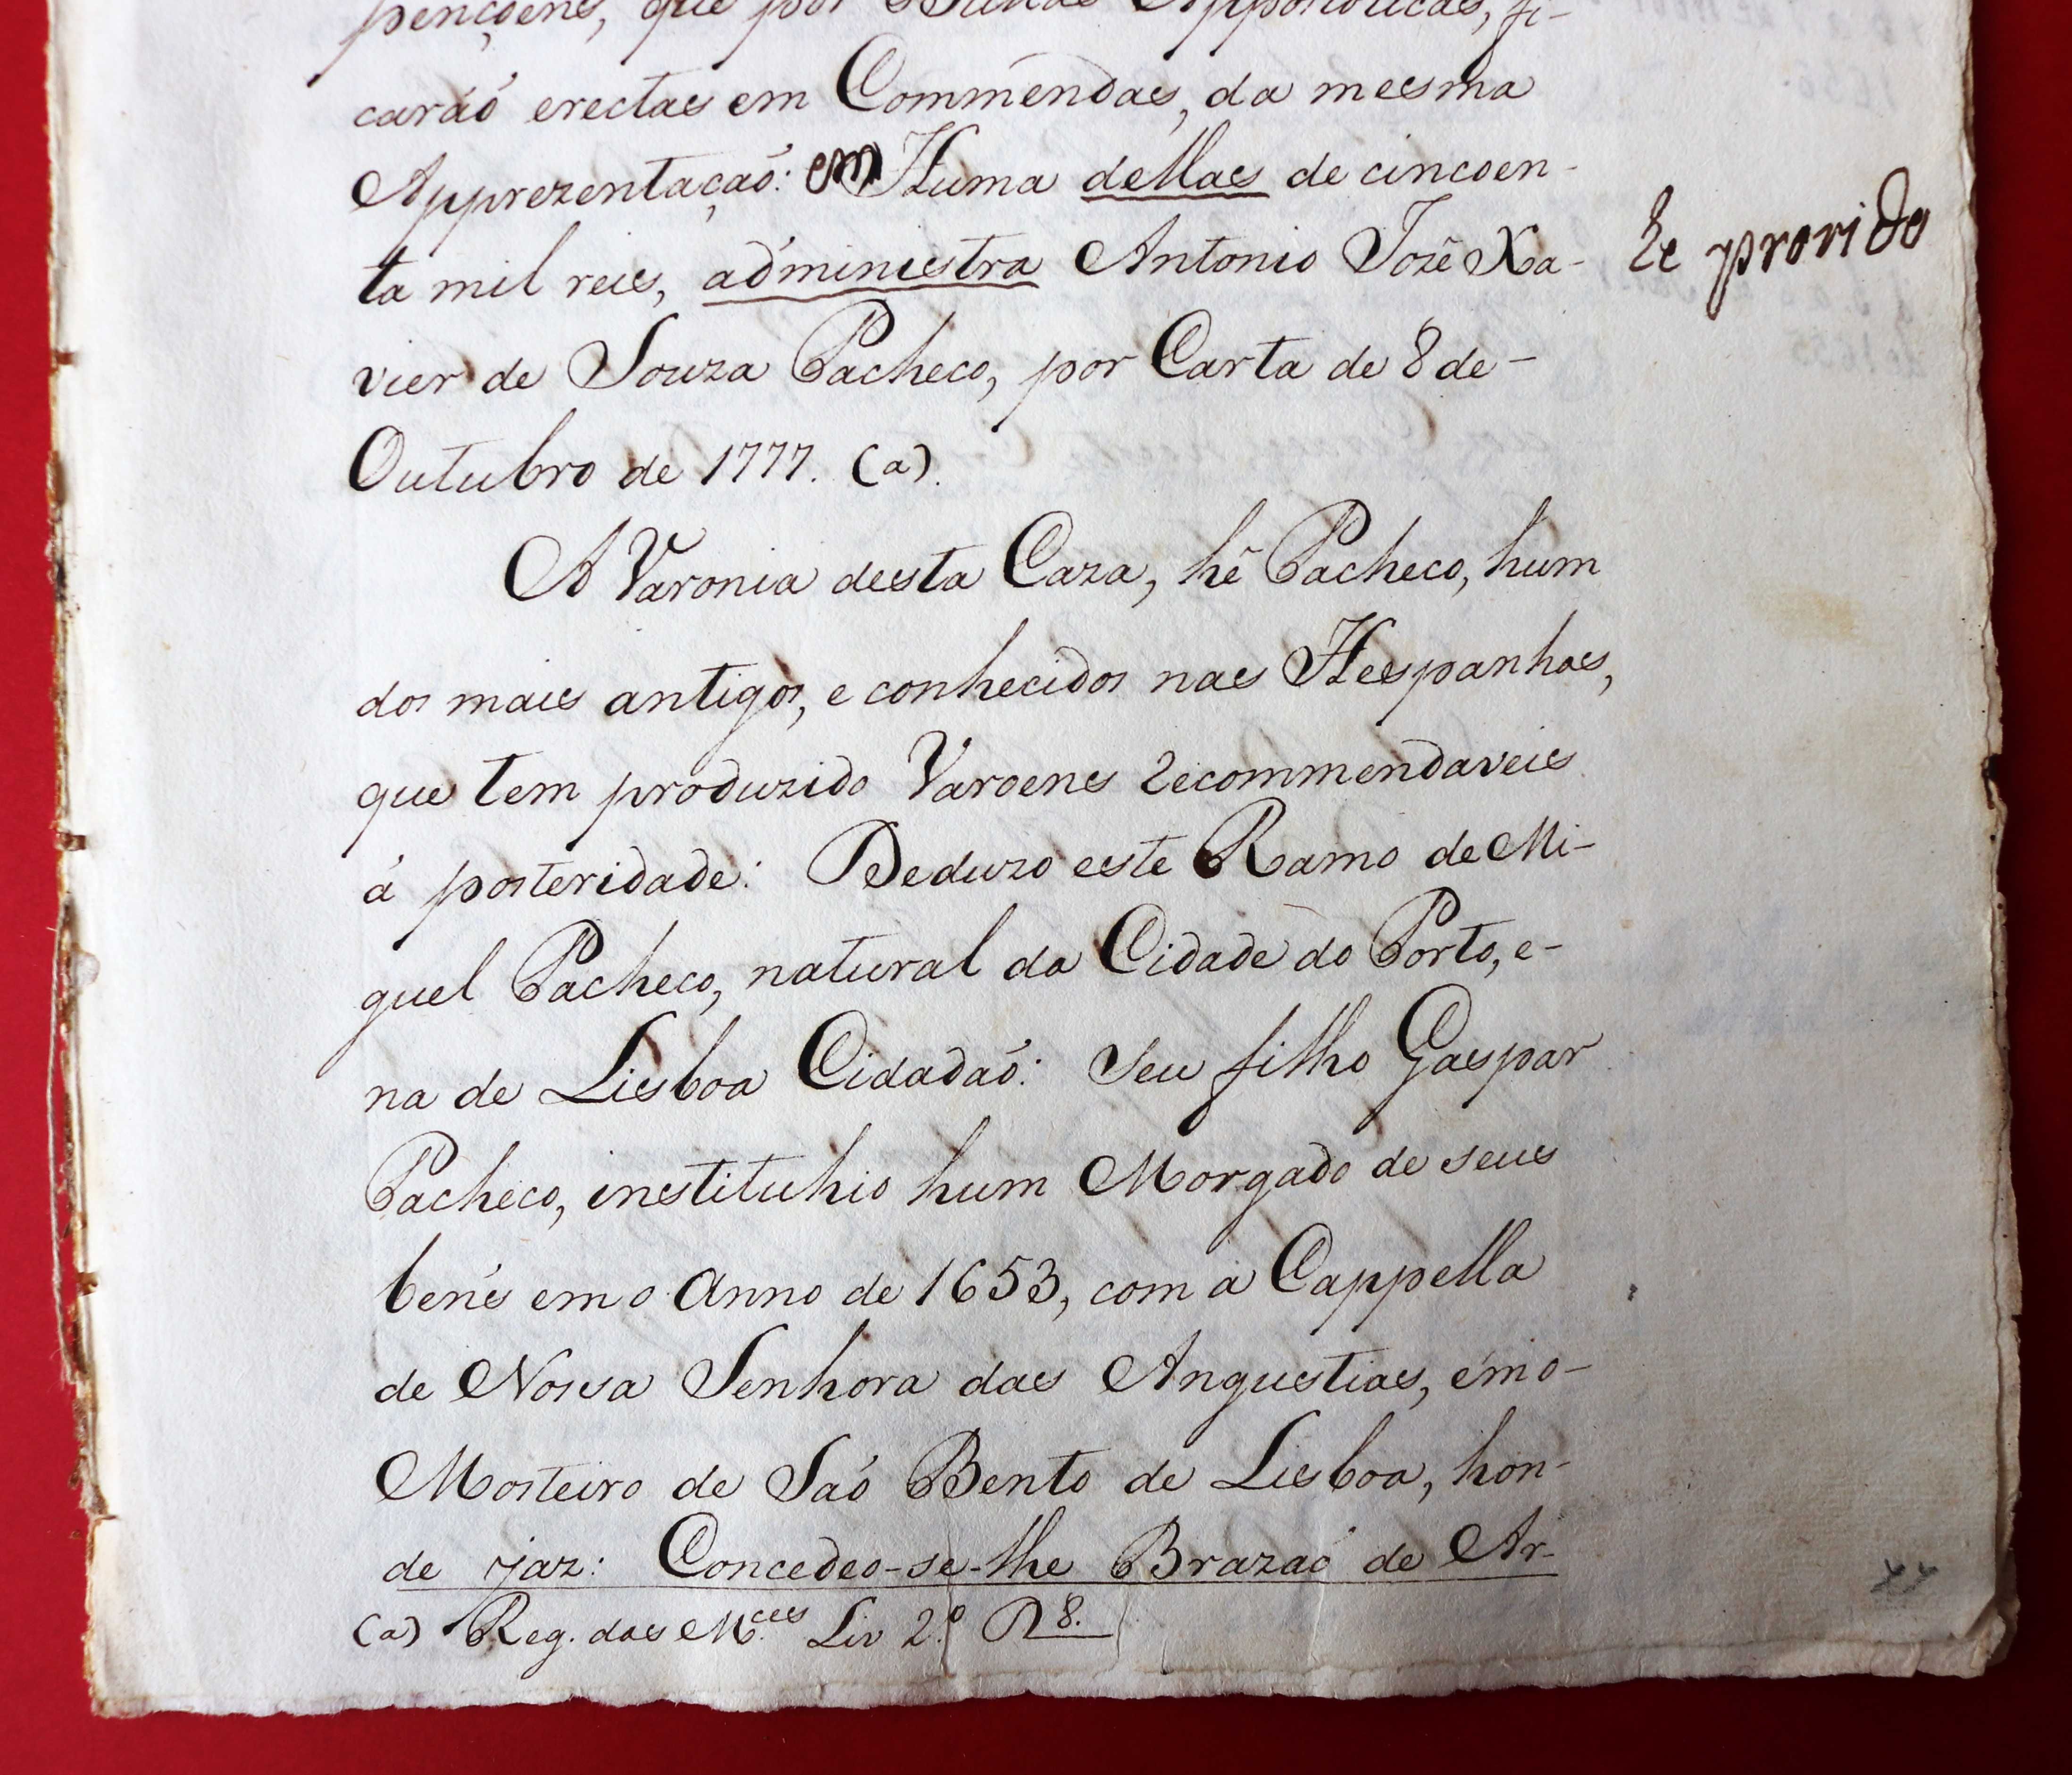 pençoens, que por Bullas Appostolicas, fi-
caráõ erectas em Commendas, da mesma
Apprezentaçaõ: em Huma dellas de cincoen-
ta mil reis, administra Antonio Jozê Xa-
he provido
vier de Souza Pacheco, por Carta de 8 de-
Outubro de 1777. (a).
A Varonia desta Caza, hê Pacheco, hum
dos mais antigos, e conhecidos nas Hespanhas,
que tem produzido Varoens recommendaveis
á posteridade: Deduzo este Ramo de Mi-
guel Pacheco, natural da Cidade do Porto, e-
na de Lisboa Cidadaõ: Seu filho Gaspar
Pacheco, instituhio hum Morgado de seus
bens em o Anno de 1653, com a Cappella
de Nossa Senhora das Angustias, em o-
Mosteiro de Saõ Bento de Lisboa, hon-
de jaz: Concedeo-se-lhe Brazaõ de Ar-
(a) Reg. das M.ces Liv 2.º 8.